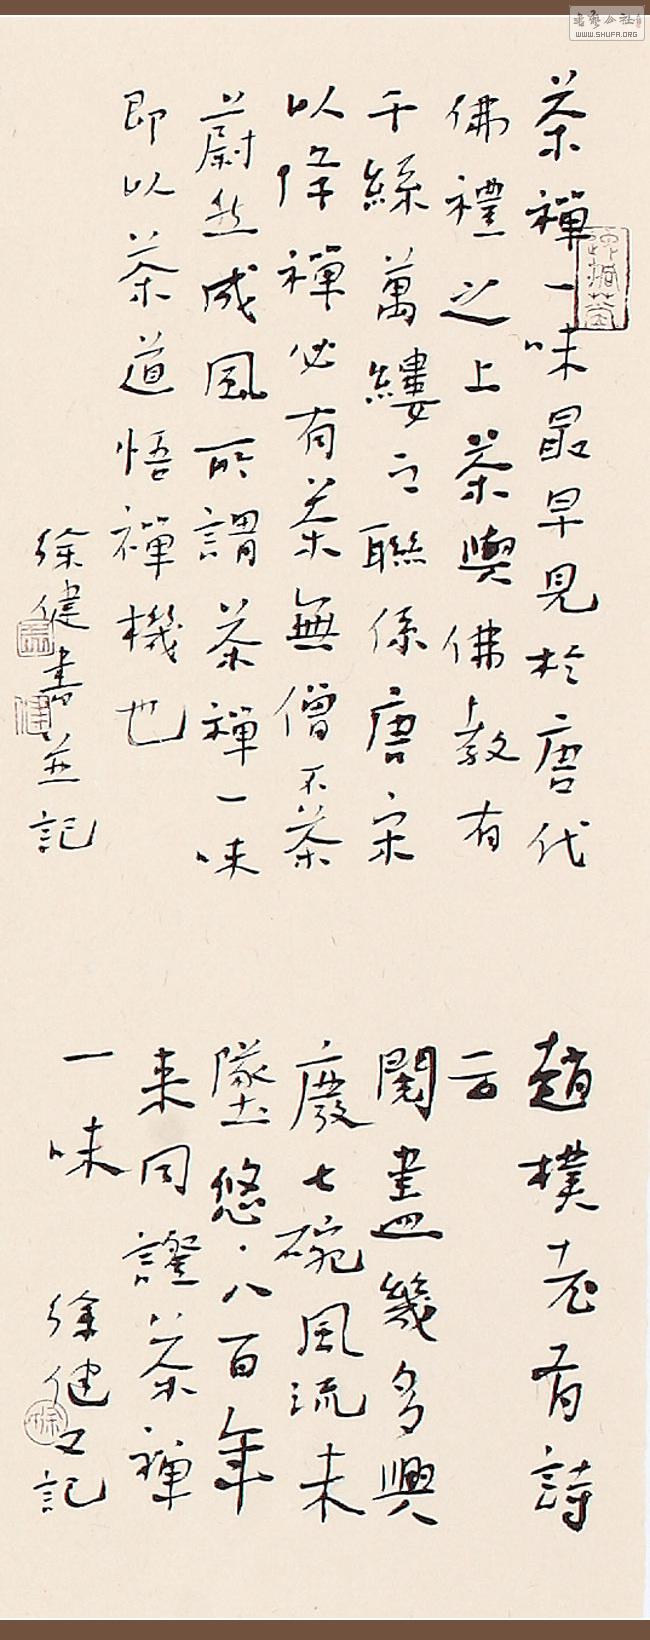 茶禪一味最早見於唐代
佛禮之上茶與佛教有
千絲萬縷之聯係唐宋
以降禪必有茶無僧不茶
蔚然成風所謂茶禪一味
即以茶道悟禪機也
徐健書並記
趙樸老有詩
云
閱盡幾多興
廢七碗風流未
墜悠々八百年
来同證茶禪
一味
徐健又記
書藝公社
WWW.SHUFA.ORG